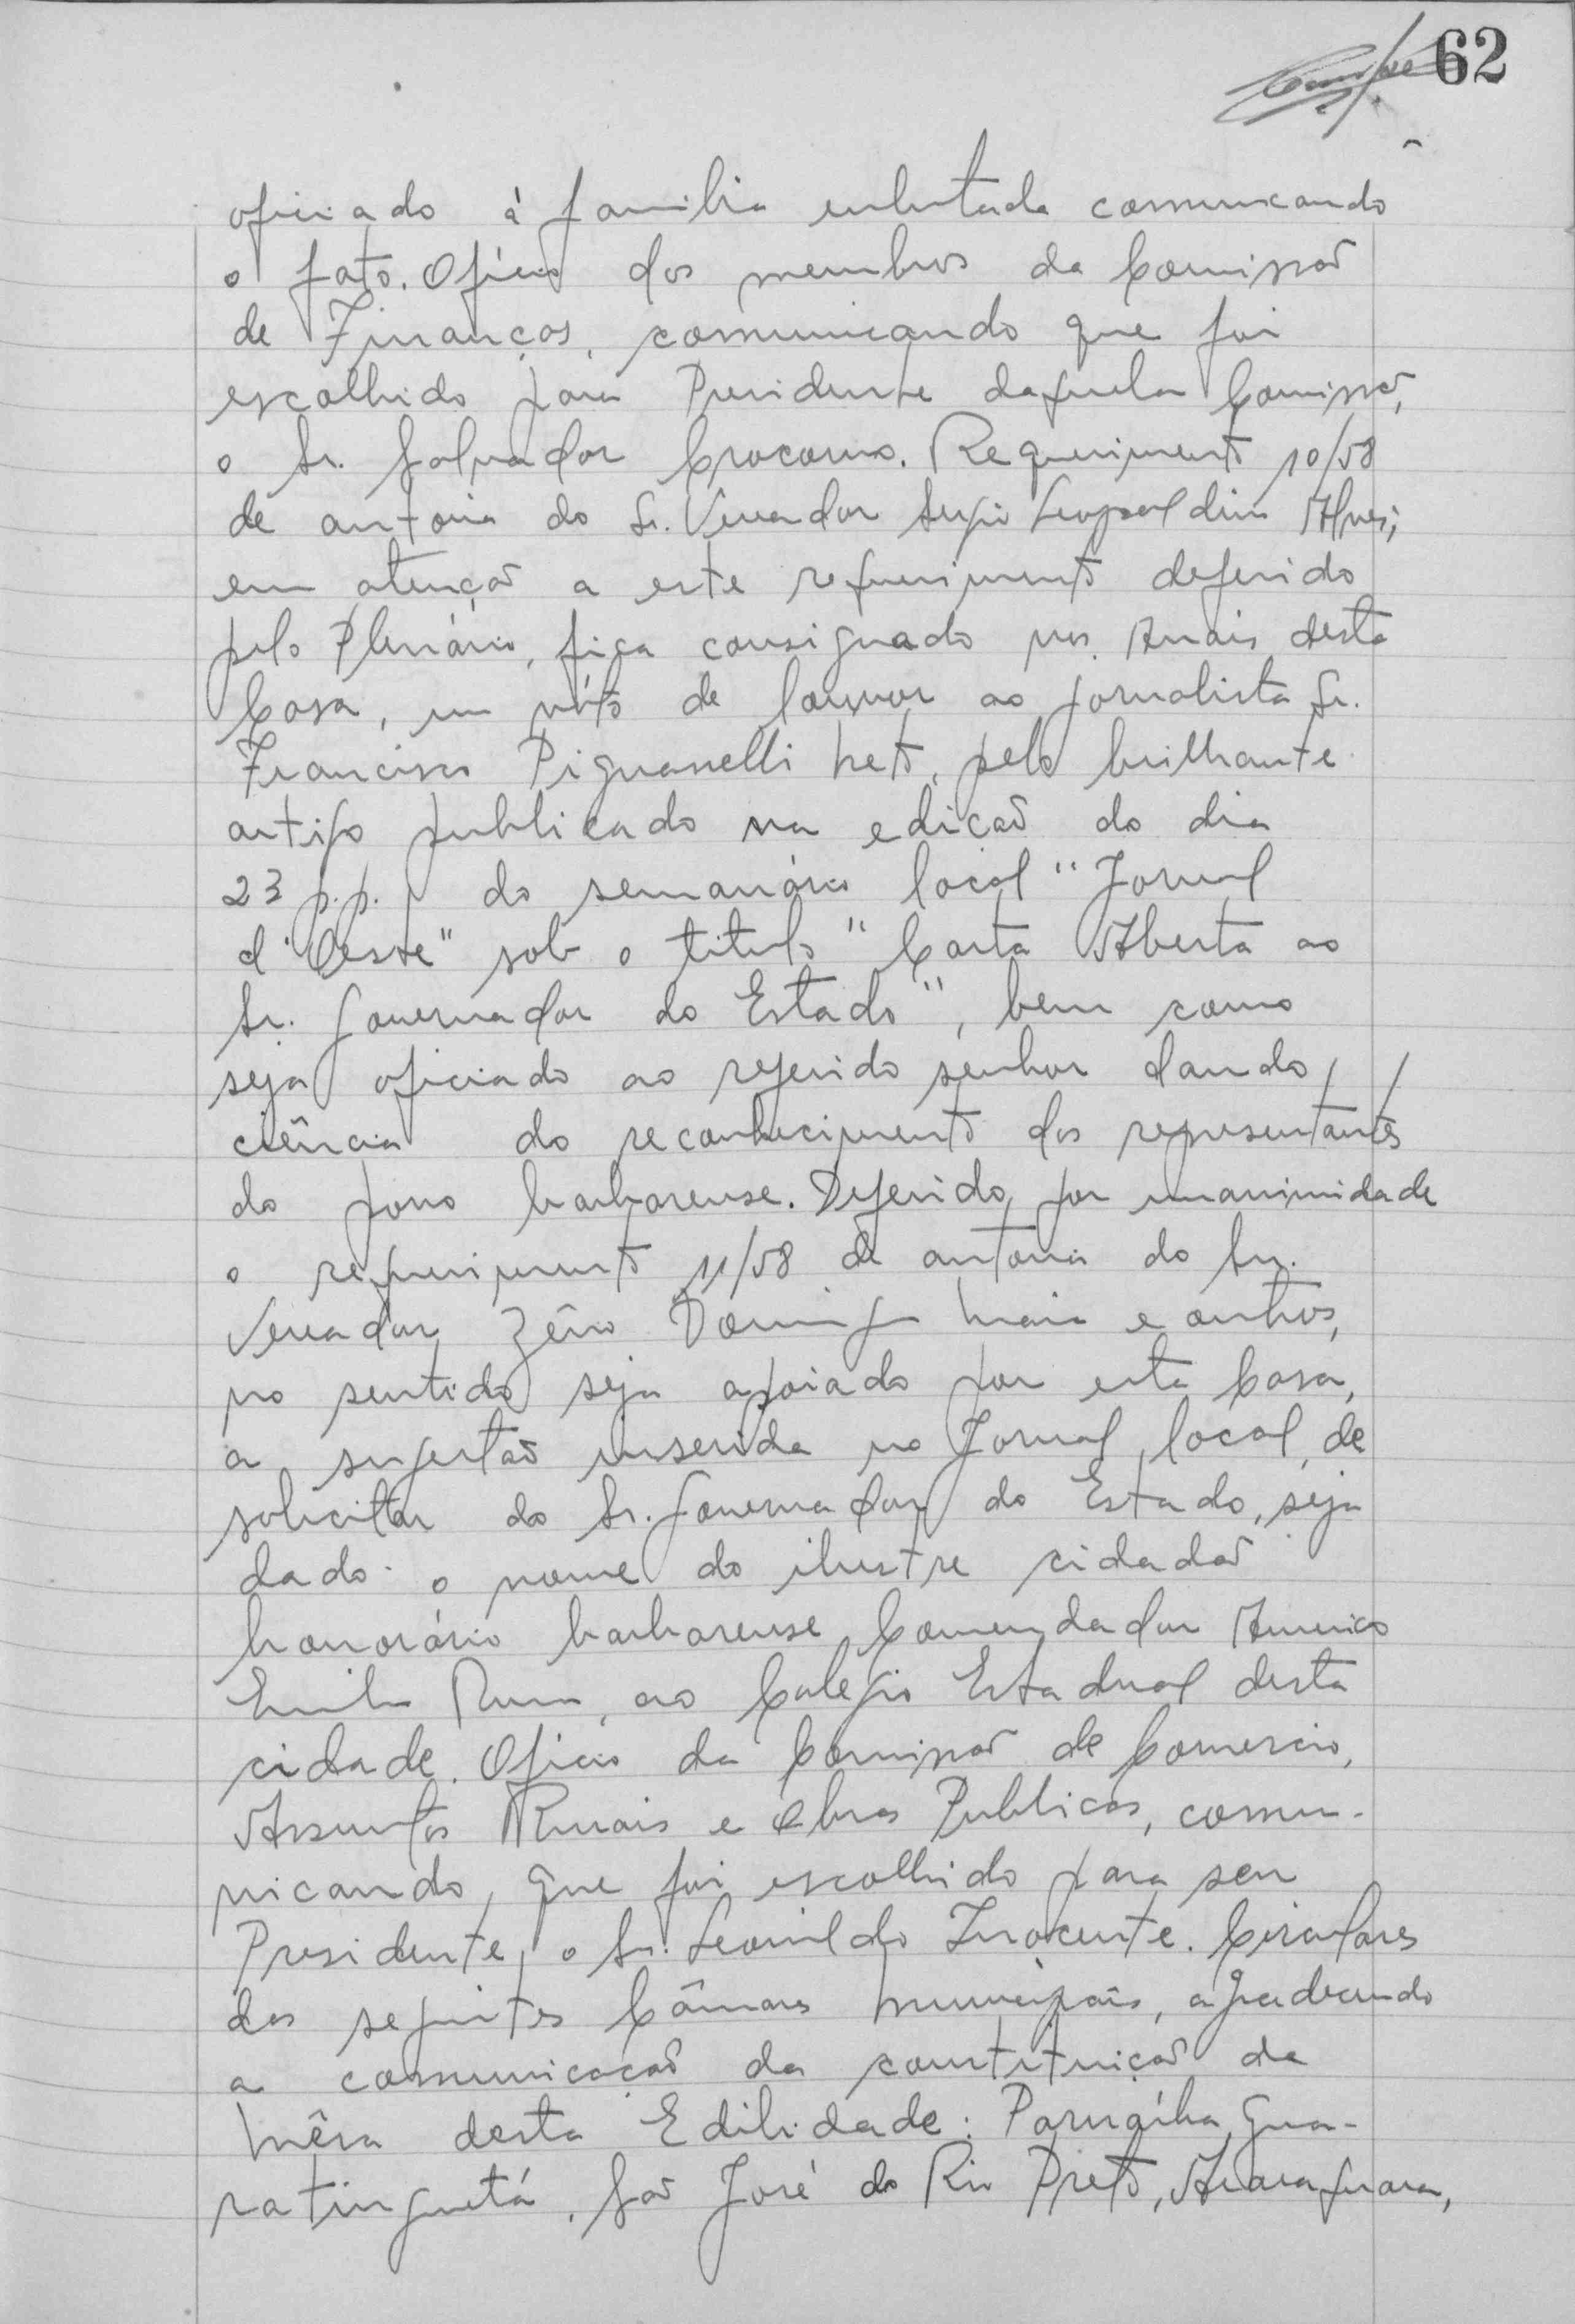 62
oficiado á familia enlutada comunicando
o fato. Oficio dos membros da Comissão
de Finanças, comunicando que foi
escolhido para Presidente daquela Comissão,
o Sr. Salvador Crocomo. Requerimento 10/58
de autoria do Sr. Vereador Sergio Leopoldino Alves;
em atenção a este requerimento deferido
pelo Plenário, fica consignado nos Anais desta
Casa, um vóto de louvor ao jornalista Sr.
Francisco Pignanelli Neto, pelo brilhante
artigo publicado na edição do dia
23 p.p. do semanário local "Jornal
d'Oeste" sob o titulo "Carta Aberta ao
Sr. Governador do Estado", bem como
seja oficiado ao referido senhor dando
ciência do reconhecimento dos representantes
do povo barbarense. Deferido por unanimidade
o requerimento 11/58 de autoria do Sr.
Vereador Zêno Domingos Maia e outros,
no sentido seja apoiado por esta Casa,
a sugestão inserida no Jornal local, de
solicitar do Sr. Governador do Estado, seja
dado o nome do ilustre cidadão
honorário barbarense Comendador Americo
Emilio Romi, ao Colegio Estadual desta
cidade. Oficio da Comissão de Comercio,
Assuntos Rurais e Obras Publicas, comu-
nicando, que foi escolhido para seu
Presidente, o Sr. Leonildo Inocente. Circulares
das seguintes Câmaras Municipais, agradecendo
a comunicação da constituição da
Mêsa desta Edilidade: Parnaíba, Gua-
ratinguetá, São José do Rio Preto, Araraquara,